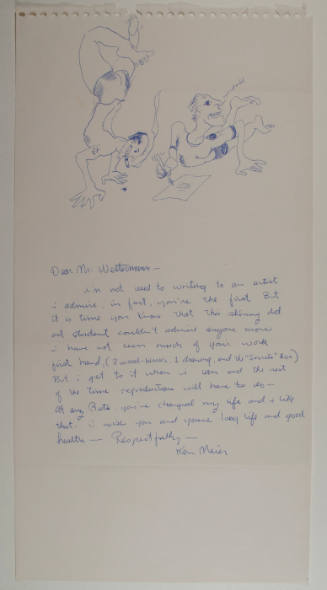 Dear Mr. Westermann –
i'm not used to writing to an artist
i admire, in fact, you're the first But
it is time you know that this skinny
art student couldn't admire anyone more
i have not seen much of your work
first hand, (2 wood-knives, 1 drawing, and the box)
But i get to it when i can and the rest
of the time reproductions will have to do –
At any Rate you've changed my life and i like
that. i wish you and spouse long life and good
health — Respectfully —
Ken Meier